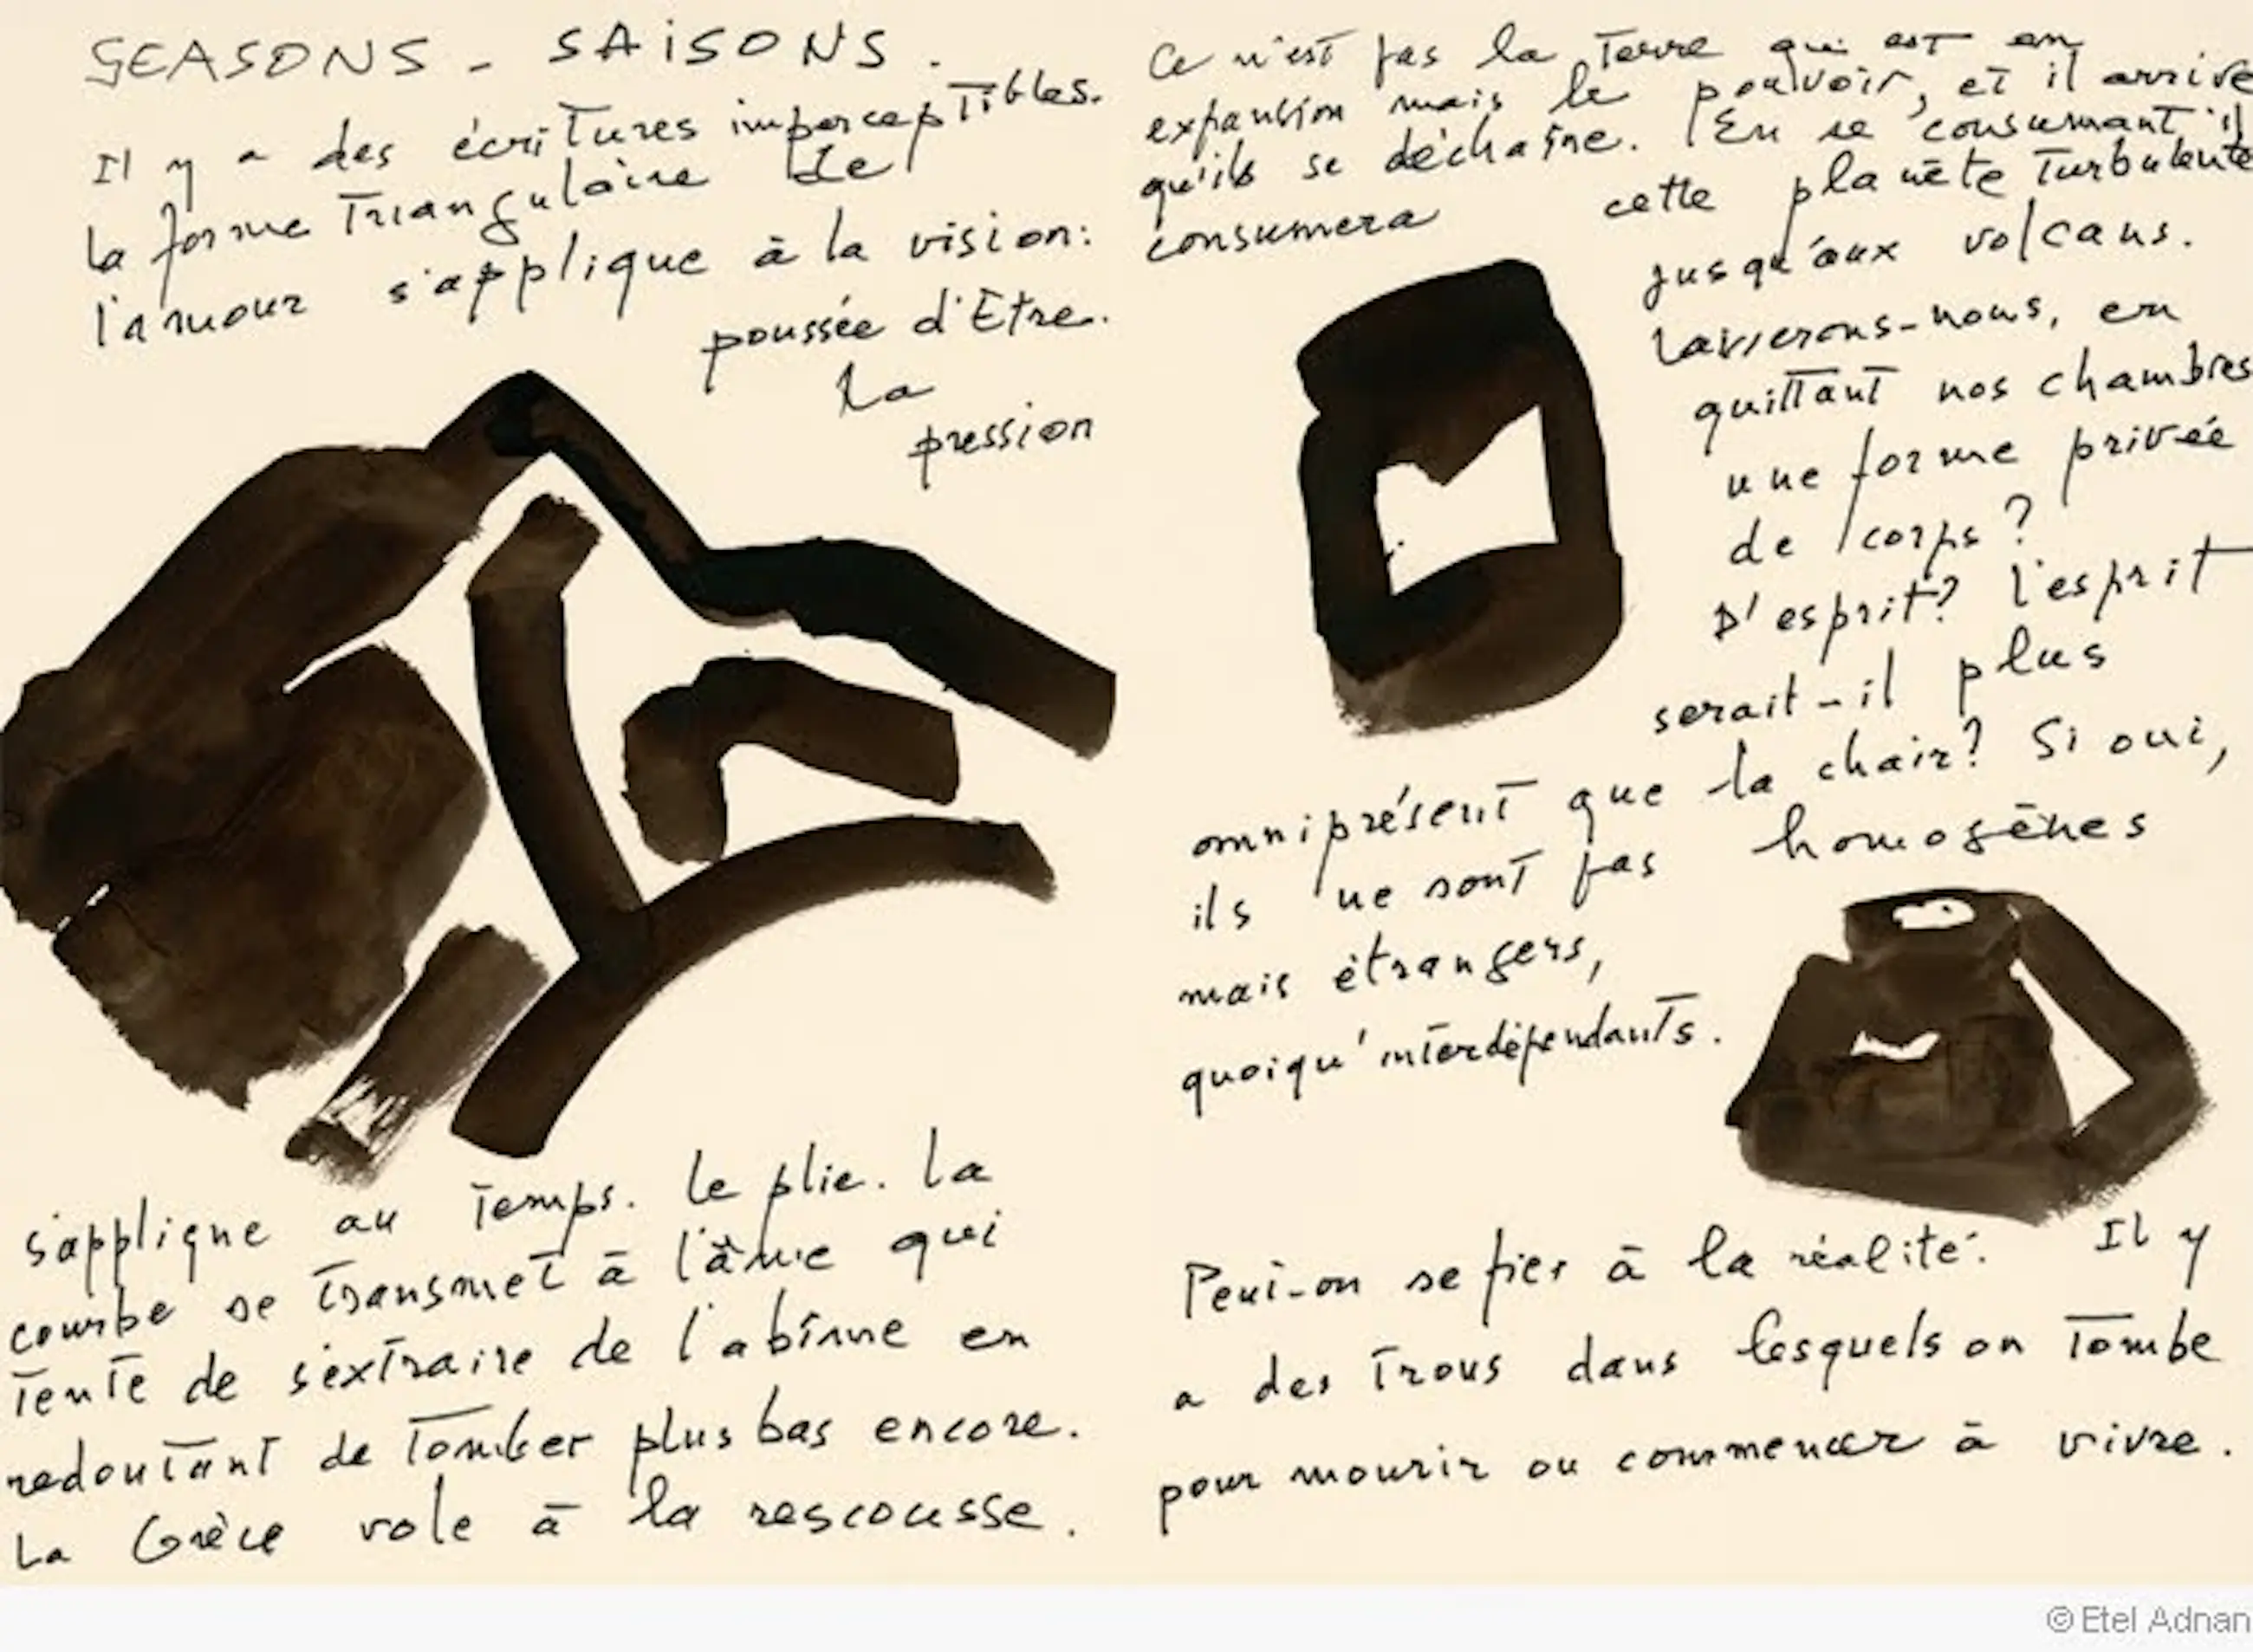 SEASONS - SAISONS.
Il y a des écritures imperceptibles.
la forme triangulaire de
l'amour s'applique à la vision:
poussée d'Etre.
La
pression
s'applique au temps. Le plie. La
courbe se transmet à l'âme qui
tente de s'extraire de l'abîme en
redoutant de tomber plus bas encore.
La Grèce vole à la rescousse.
Ce n'est pas la Terre qui est en
expansion mais le pouvoir, et il arrive
qu'ils se déchaîne. En se consumant il
consumera cette planète turbulente
jusqu'aux volcans.
Laisserons-nous, en
quittant nos chambres
une forme privée
de corps?
D'esprit? L'esprit
serait-il plus
omniprésent que la chair? Si oui,
ils ne sont pas homogènes
mais étrangers,
quoiqu'interdépendants.
Peut-on se fier à la réalité: Il y
a des trous dans lesquels on tombe
pour mourir ou commencer à vivre.
© Etel Adnan